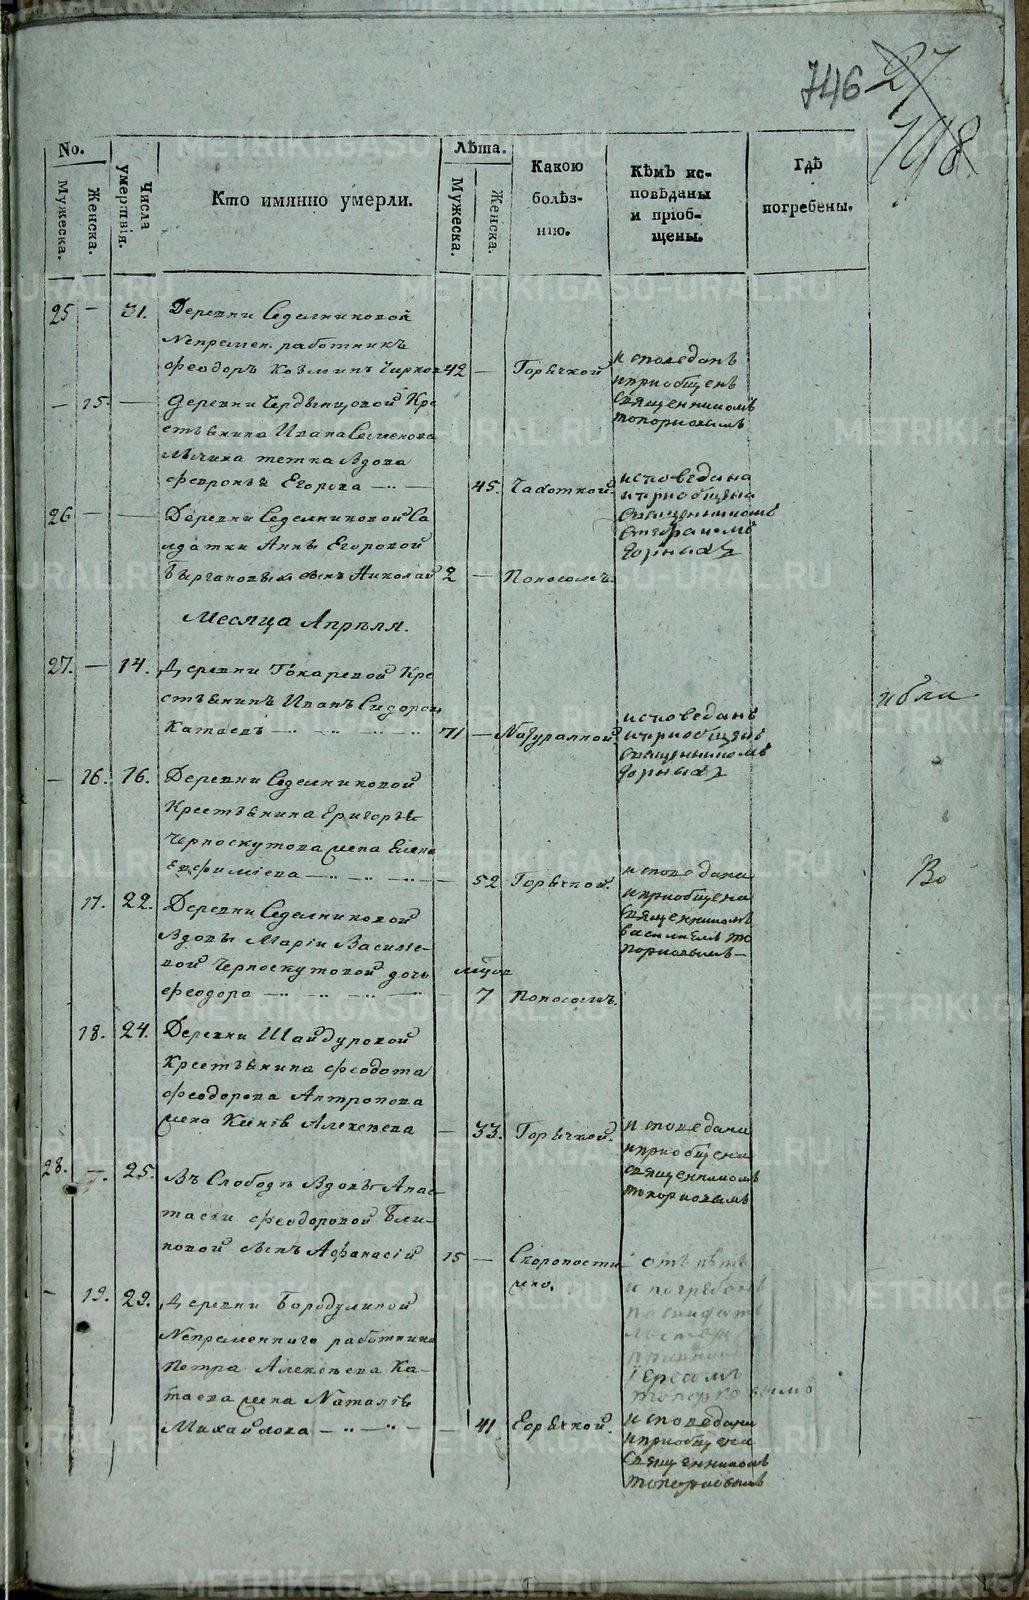 746 27
198
No.
Мужеска.
Женска.
Числа умертвія.
Кто имянно умерли.
Лѣта.
Мужеска.
Женска.
Какою болѣз-
нію.
Кѣмъ ис-
повѣданы
и пріоб-
щены.
Гдѣ
погребены.
25 — 31. Деревни Седелниковой
Непремен. работникъ
Феодоръ Козминъ 42 — Горячкой исповеданъ
и приобщенъ
священникомъ
топорковымъ
— 15. — Деревни Кре
стьянина Ивана Семенова
тетка вдова
Феврония Егорова 45. Чахоткой исповедана
и приобщена
священникомъ
Стефаномъ
Горныхъ
26 — — Деревни Седелниковой Са
лдатки Анны Егоровой
сынъ Николай 2 — Поносомъ
Месяца Апрѣля.
27. — 14. Деревни Токаревой Кре
стьянинъ Иванъ Сидоровъ
Катаевъ 71 — Натуралной исповеданъ
и приобщенъ
священникомъ
Горныхъ
— 16. 16. Деревни Седелниковой
Крестьянина Григорья
Черноскутова жена Елена
Евфимиева 52 Горячкой. исповедана
и приобщена
священникомъ
василиемъ то
порковымъ
17. 22. Деревни Седелниковой
Вдовы Марiи Василие-
вой Черноскутовой дочь
Феодора 7 Поносомъ.
18. 24. Деревни Шайдуровой
Крестьянина Феодота
Феодорова Антропова
жена Ксения Алексеева — 33. Горячкой. исповедана
и приобщена
священникомъ
топорковымъ
28. — 25. Въ Слободе Вдовы Анас
тасiи Феодоровой Бли-
новой сынъ Афанасiй 15 — Скоропости
жно. отпетъ
и погребенъ
топорковымъ
— 19. 29. Деревни Бородулиной
Непременного работника
Петра Алексеева Ка-
таева жена Наталiя
Михайлова — 41. Горячкой. исповедана
и приобщена
священникомъ
топорковымъ
METRIKI.GASO-URAL.RU